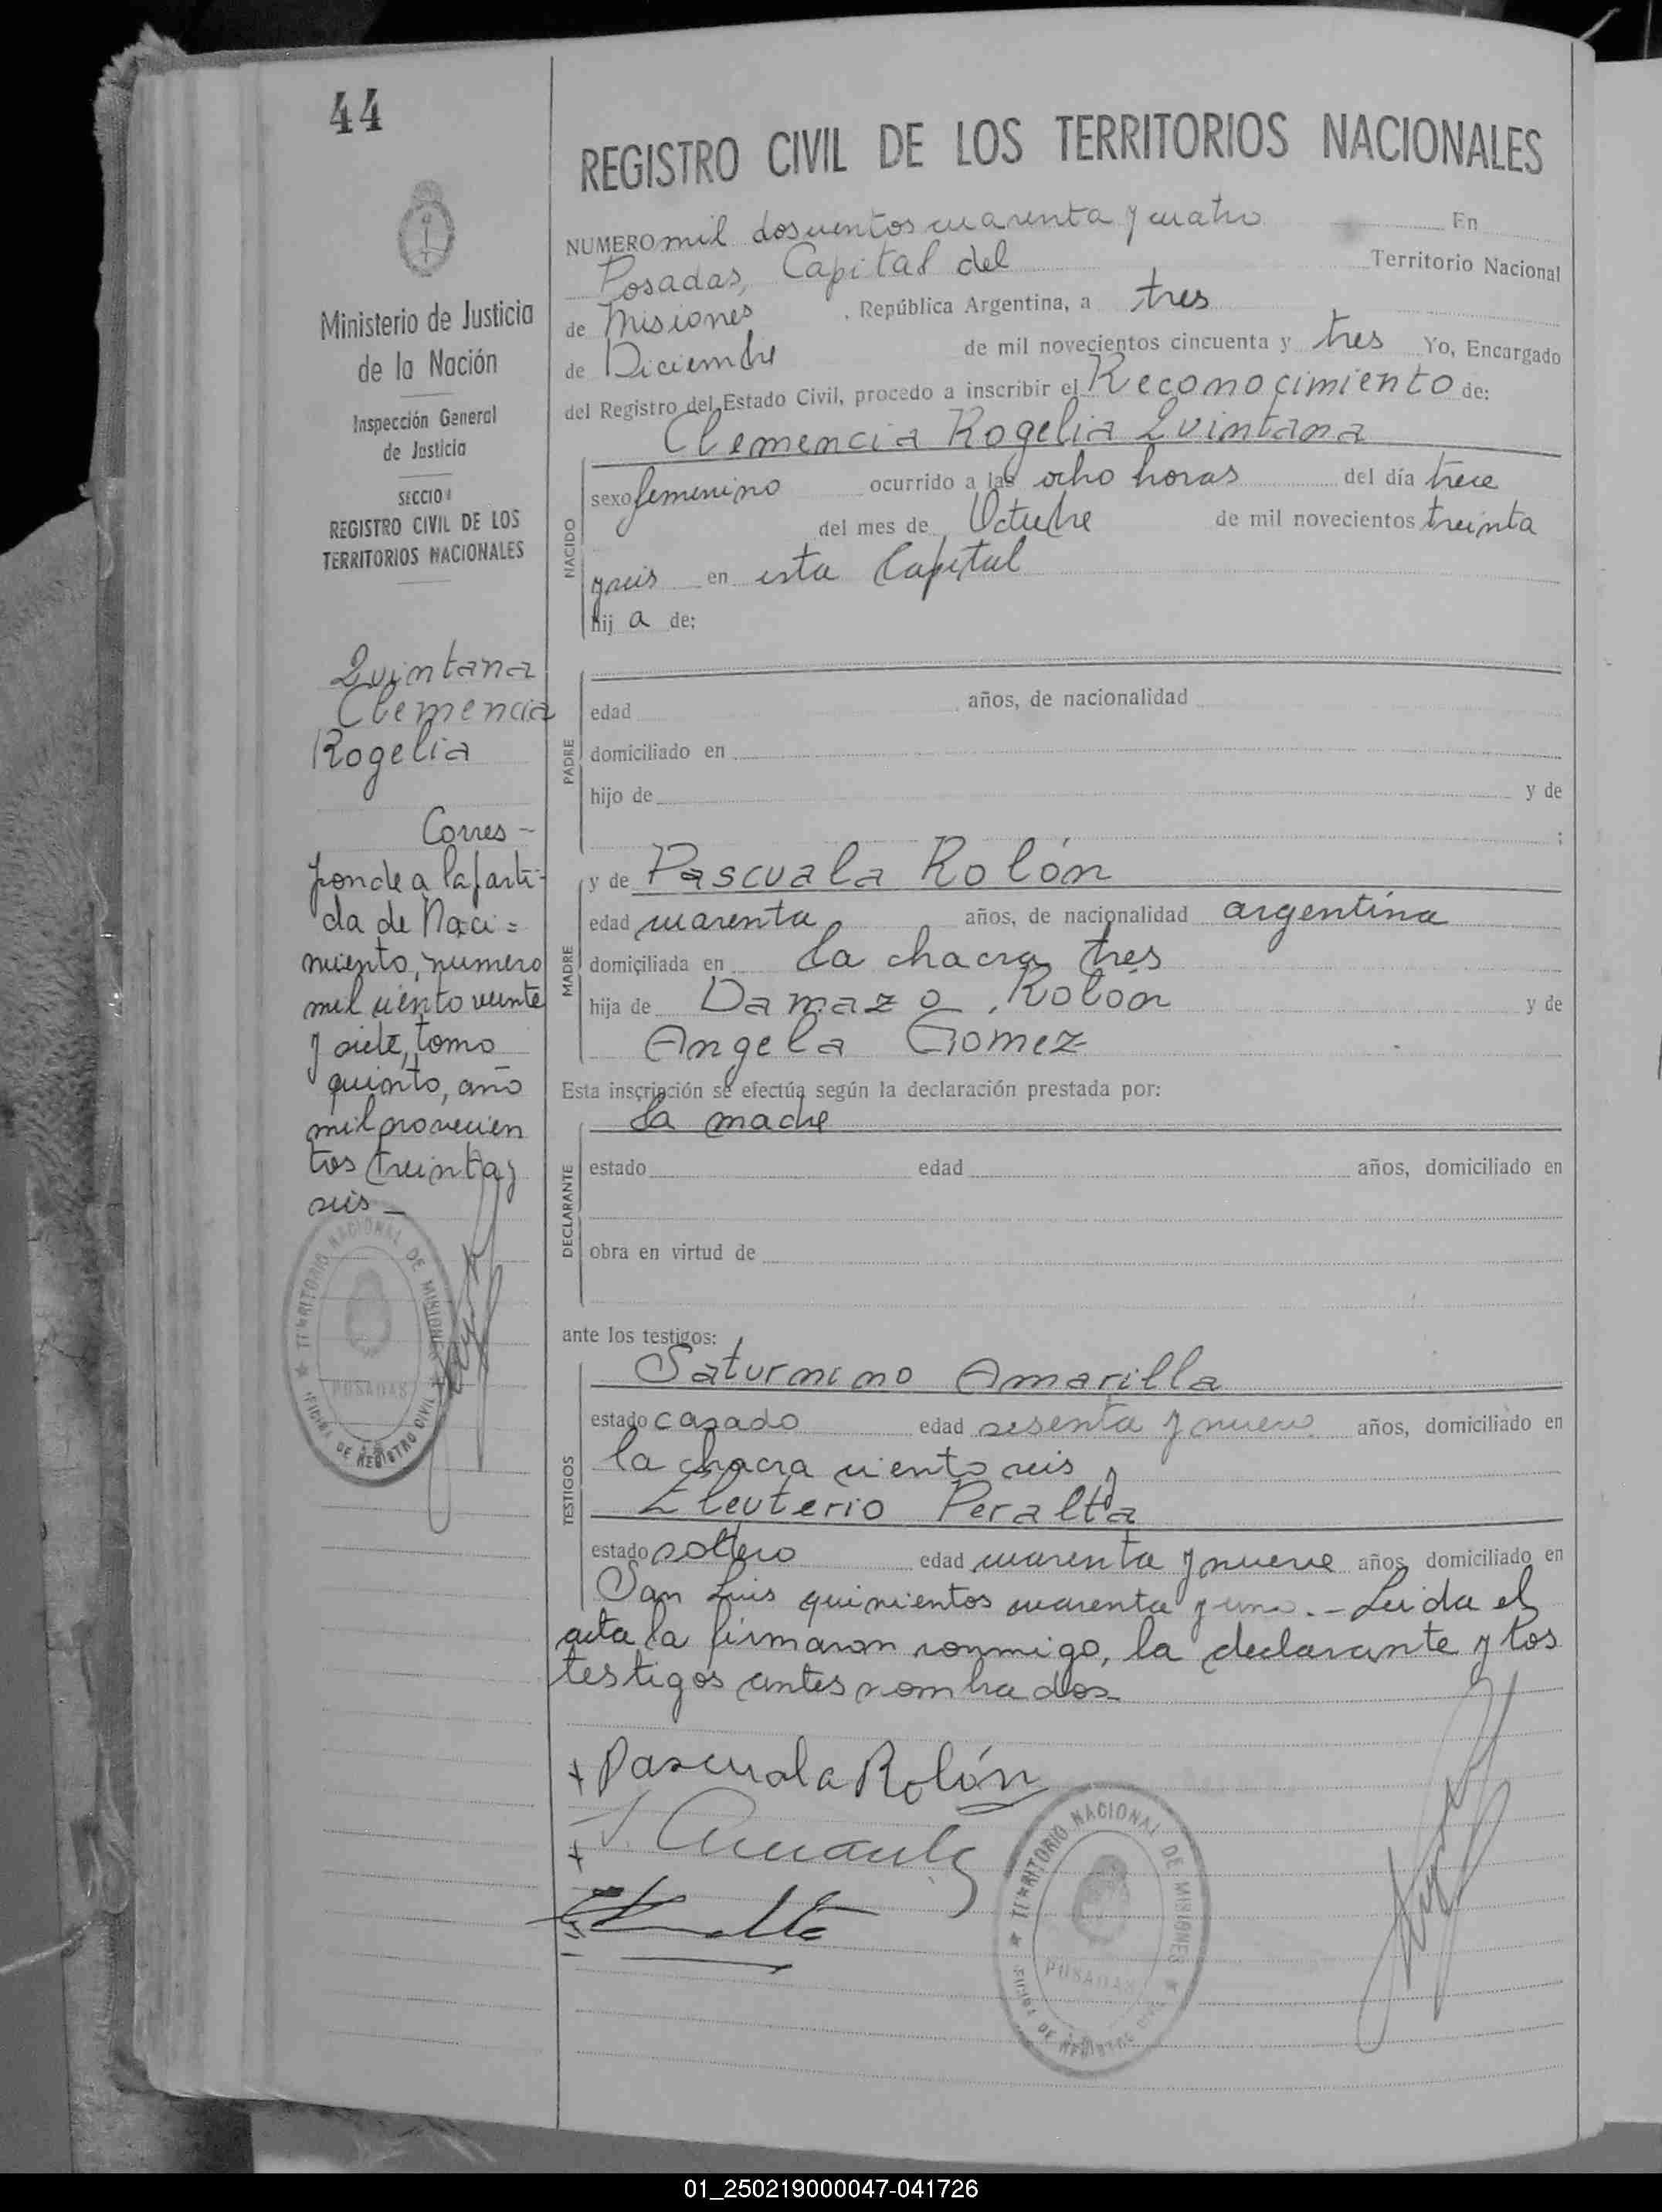 44
REGISTRO CIVIL DE LOS TERRITORIOS NACIONALES
Ministerio de Justicia
de la Nación
Inspección General
de Justicia
SECCION
REGISTRO CIVIL DE LOS
TERRITORIOS NACIONALES
Quintana
Clemencia
Rogelia
Corres-
ponde a la parti-
da de Naci=
miento, numero
mil ciento veinte
y siete, tomo
quinto, año
mil novecien
tos treinta y
seis_
TERRITORIO NACIONAL DE MISIONES
POSADAS
OFICINA DE REGISTRO CIVIL
NUMERO mil doscientos cuarenta y cuatro En
Posadas, Capital del Territorio Nacional
de Misiones, República Argentina, a tres
de Diciembre de mil novecientos cincuenta y tres Yo, Encargado
del Registro del Estado Civil, procedo a inscribir el Reconocimiento de:
Clemencia Rogelia Quintana
NACIDO
sexo femenino ocurrido a las ocho horas del día trece
del mes de Octubre de mil novecientos treinta
y seis en esta Capital
hij a de:
PADRE
edad años, de nacionalidad
domiciliado en
hijo de y de
;
MADRE
y de Pascuala Rolón
edad cuarenta años, de nacionalidad argentina
domiciliada en la chacra tres
hija de Damazo Rolón y de
Angela Gomez
Esta inscripción se efectúa según la declaración prestada por:
la madre
DECLARANTE
estado edad años, domiciliado en
obra en virtud de
ante los testigos:
TESTIGOS
Saturnino Amarilla
estado casado edad sesenta y nueve años, domiciliado en
la chacra ciento seis y
Eleuterio Peralta
estado soltero edad cuarenta y nueve años, domiciliado en
San Luis quinientos cuarenta y uno.- Leida el
acta la firmaron conmigo, la declarante y los
testigos antes nombrados.
+ Pascuala Rolón
+
TERRITORIO NACIONAL DE MISIONES
POSADAS
OFICINA DE REGISTRO CIVIL
01_250219000047-041726